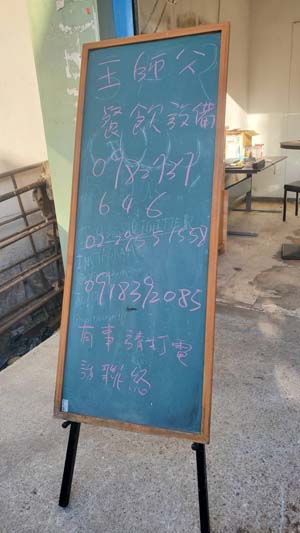 王師公
餐飲設備
0982937
646
02-29557558
0918392085
有事請打電
話聯絡